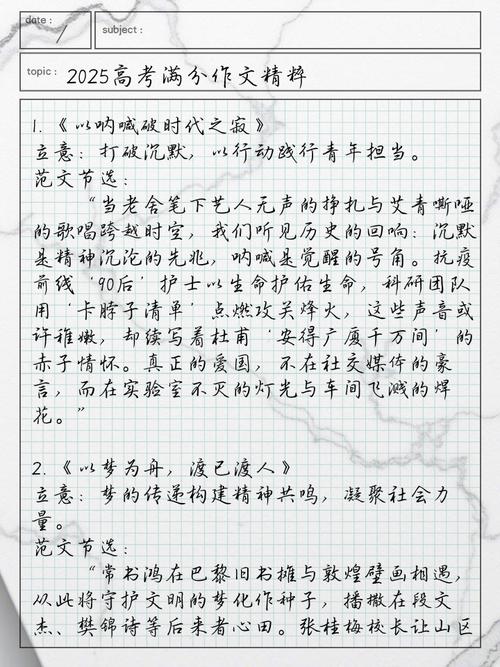 date :
subject :
topic : 2025高考满分作文精粹
1.《以呐喊破时代之寂》
立意：打破沉默，以行动践行青年担当。
范文节选：
“当老舍笔下艺人无声的挣扎与艾青嘶哑
的歌唱跨越时空，我们听见历史的回响：沉默
是精神沉沦的先兆，呐喊是觉醒的号角。抗疫
前线‘90后’护士以生命护佑生命，科研团队
用‘卡脖子清单’点燃攻关烽火，这些声音或
许稚嫩，却续写着杜甫‘安得广厦千万间’的
赤子情怀。真正的爱国，不在社交媒体的豪
言，而在实验室不灭的灯光与车间飞溅的焊
花。”
2.《以梦为舟，渡己渡人》
立意：梦的传递构建精神共鸣，凝聚社会力
量。
范文节选：
“常书鸿在巴黎旧书摊与敦煌壁画相遇，
从此将守护文明的梦化作种子，播撒在段文
杰、樊锦诗等后来者心田。张桂梅校长让山区